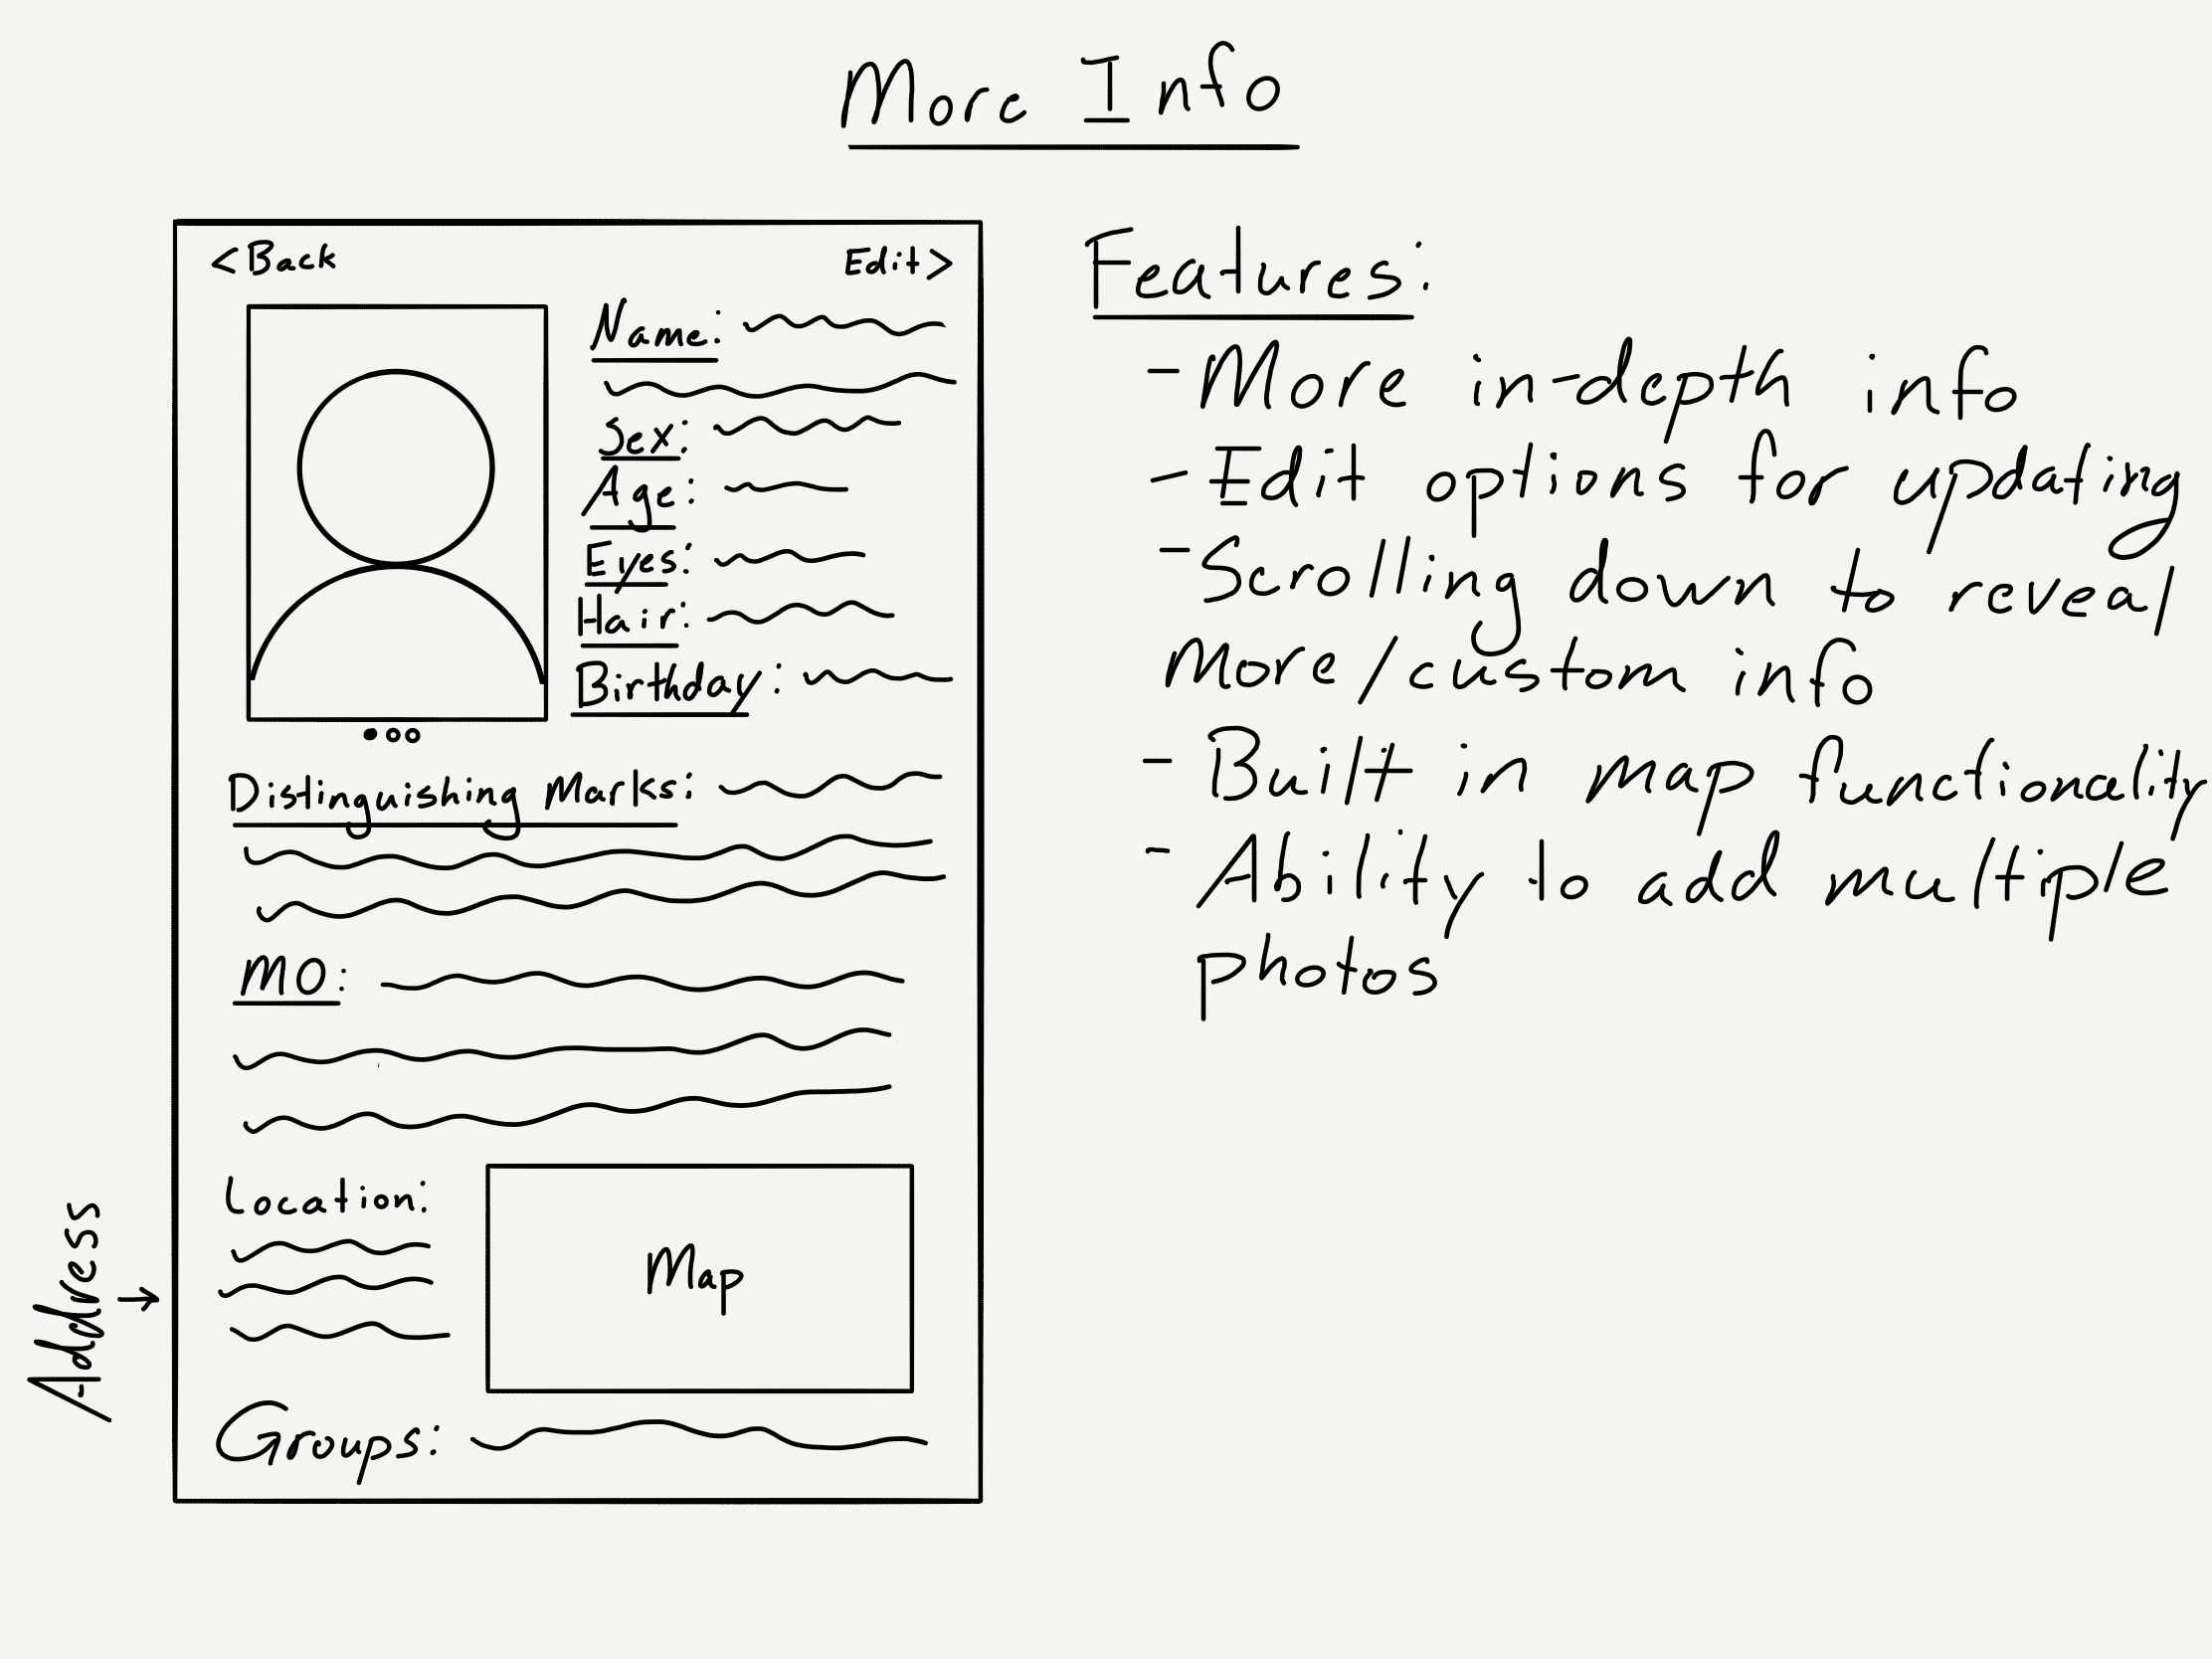 More Info
<Back
Edit>
Name:
Sex:
Age:
Eyes:
Hair:
Birthday:
Distinguishing Marks:
MO:
Location:
Map
Groups:
Address →
Features:
- More in-depth info
- Edit options for updating
- Scrolling down to reveal
More/custom info
- Built in map functionality
- Ability to add multiple
photos